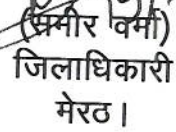 (समीर वर्मा)
जिलाधिकारी
मेरठ।